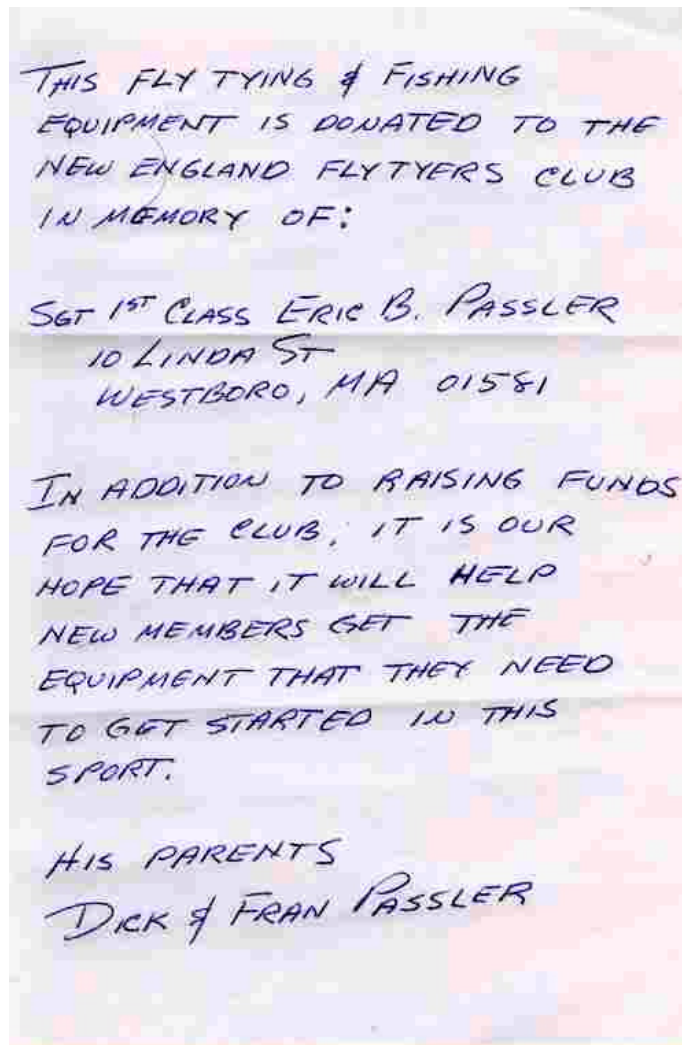 THIS FLY TYING & FISHING
EQUIPMENT IS DONATED TO THE
NEW ENGLAND FLYTYERS CLUB
IN MEMORY OF:
SGT 1ST CLASS ERIC B. PASSLER
10 LINDA ST
WESTBORO, MA 01581
IN ADDITION TO RAISING FUNDS
FOR THE CLUB, IT IS OUR
HOPE THAT IT WILL HELP
NEW MEMBERS GET THE
EQUIPMENT THAT THEY NEED
TO GET STARTED IN THIS
SPORT.
HIS PARENTS
DICK & FRAN PASSLER